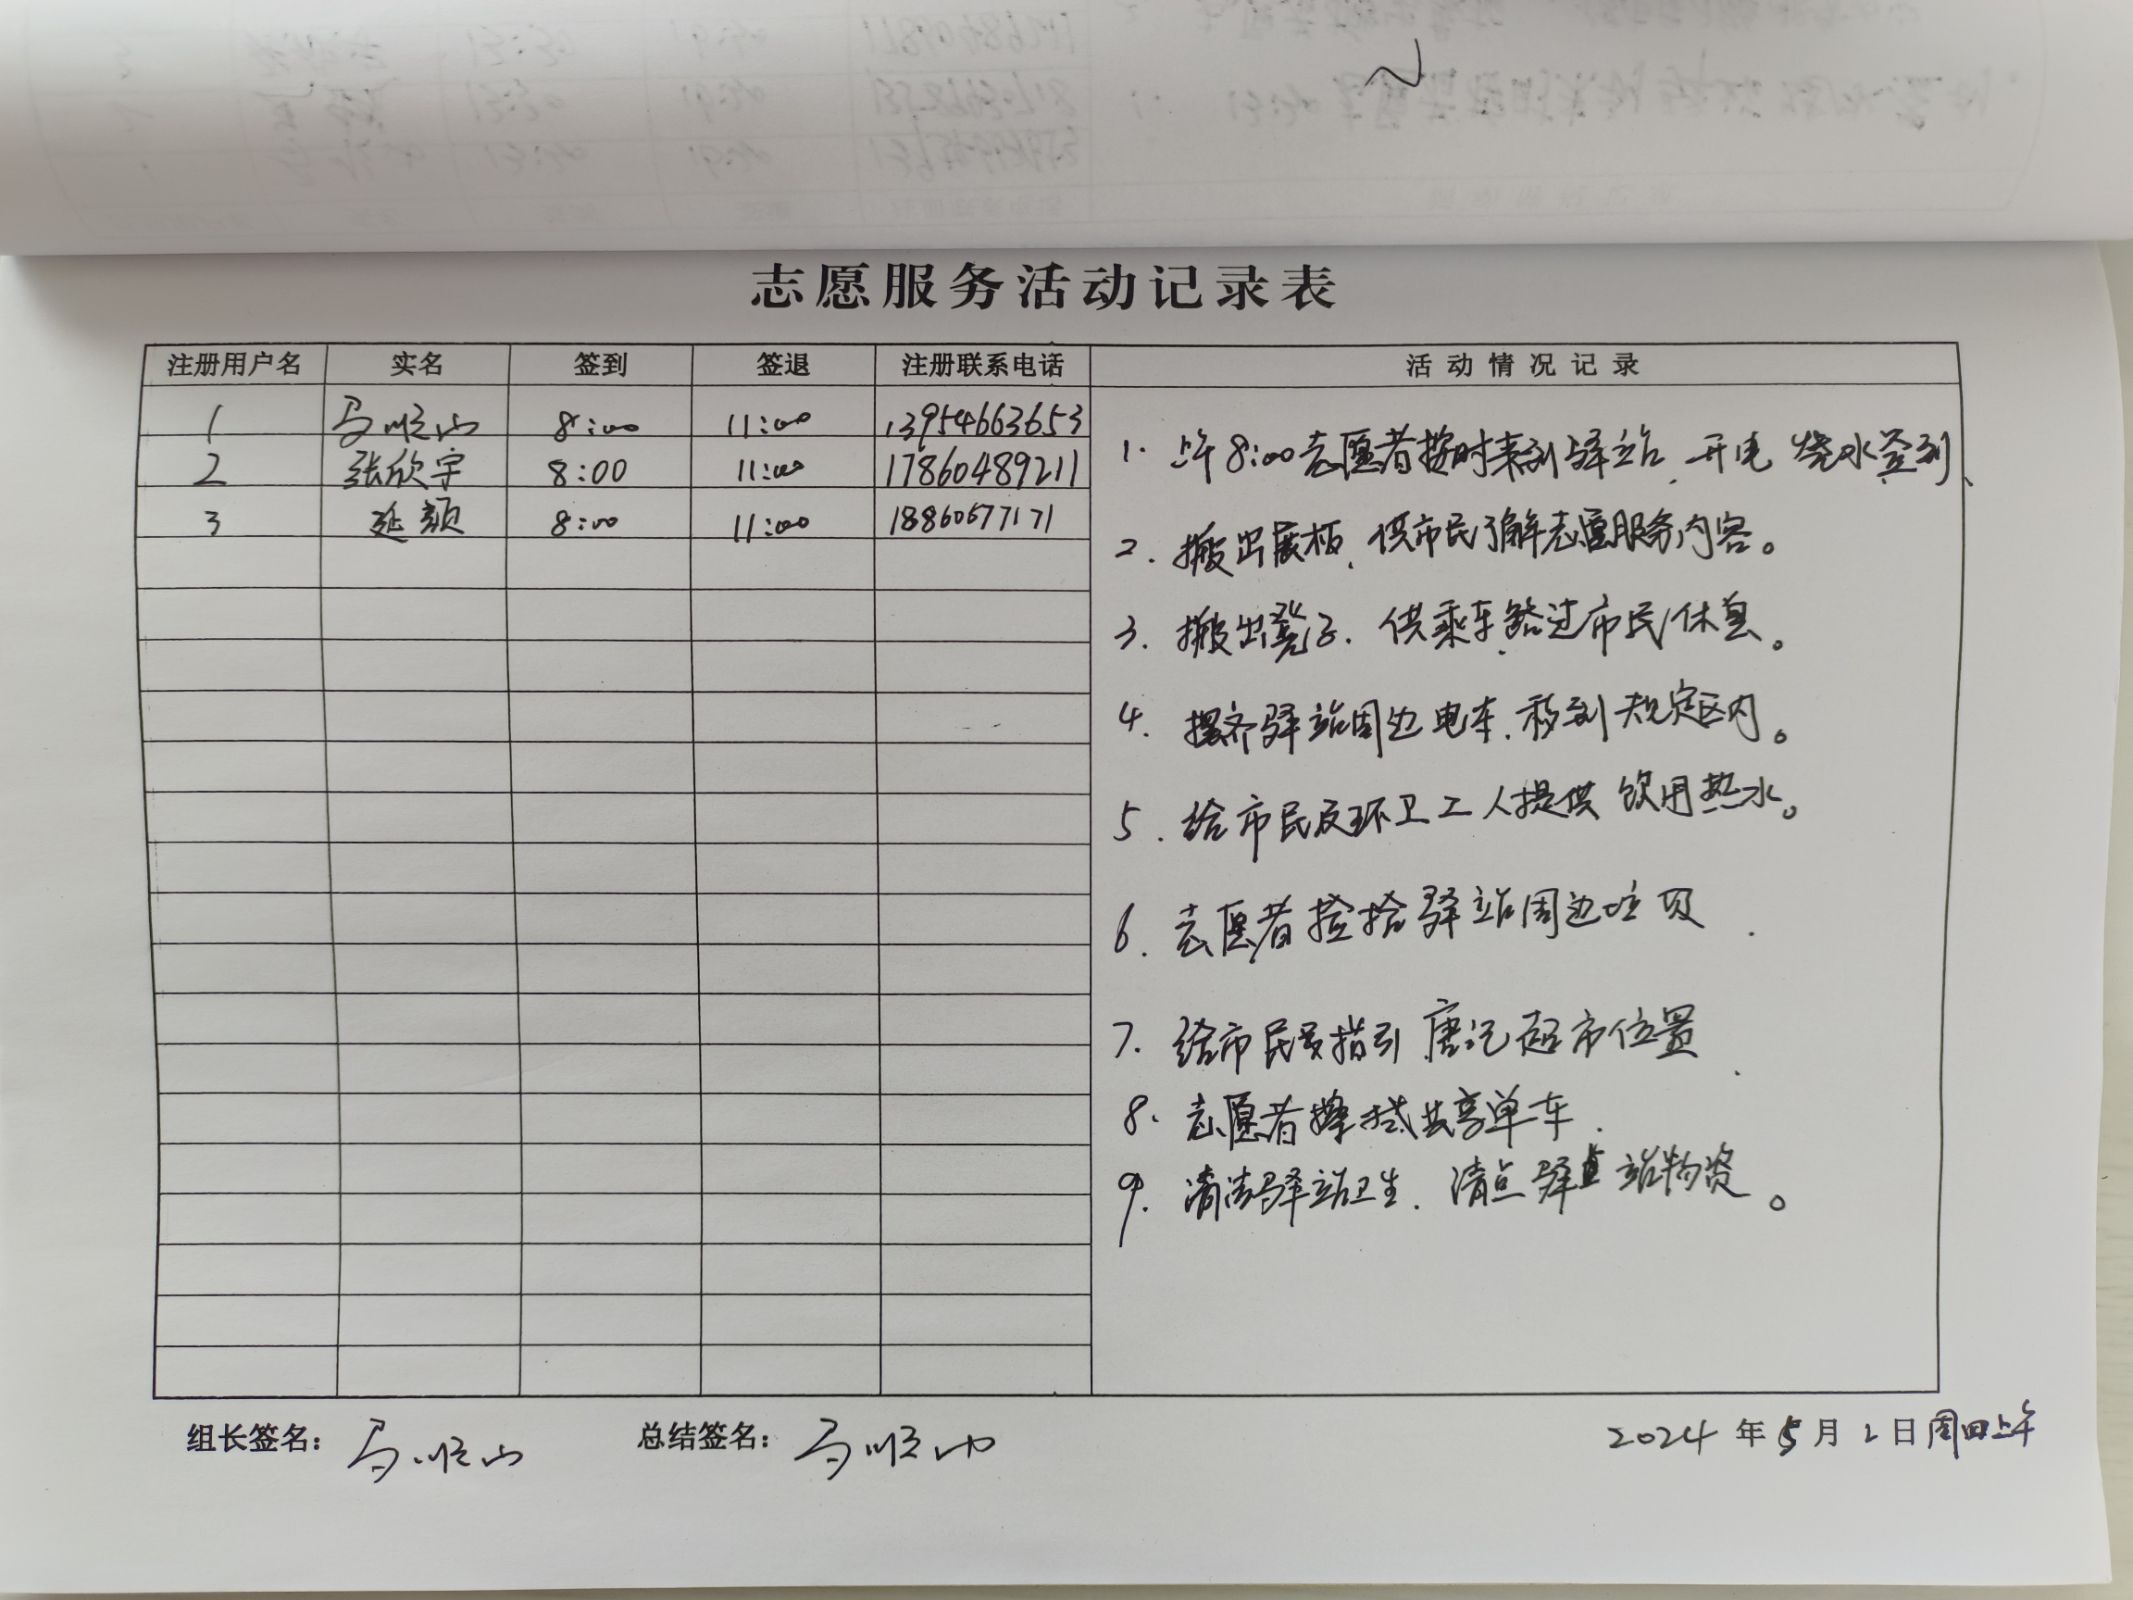 志愿服务活动记录表
注册用户名 实名 签到 签退 注册联系电话 活动情况记录
1 马顺山 8:00 11:00 13954663653
2 张欣宇 8:00 11:00 17860489211
3 延颖 8:00 11:00 18860677171
1. 上午8:00志愿者按时来到驿站、开电 烧水签到、
2. 搬出展板、供市民了解志愿服务内容。
3. 搬出凳子、供乘车路过市民休息。
4. 摆齐驿站周边电车、移到规定区内。
5. 给市民及环卫工人提供饮用热水。
6. 志愿者捡拾驿站周边垃圾.
7. 给市民指引唐记超市位置.
8. 志愿者擦拭共享单车.
9. 清洁驿站卫生.清点驿站物资。
组长签名：马顺山 总结签名：马顺山 2024年5月2日周四上午